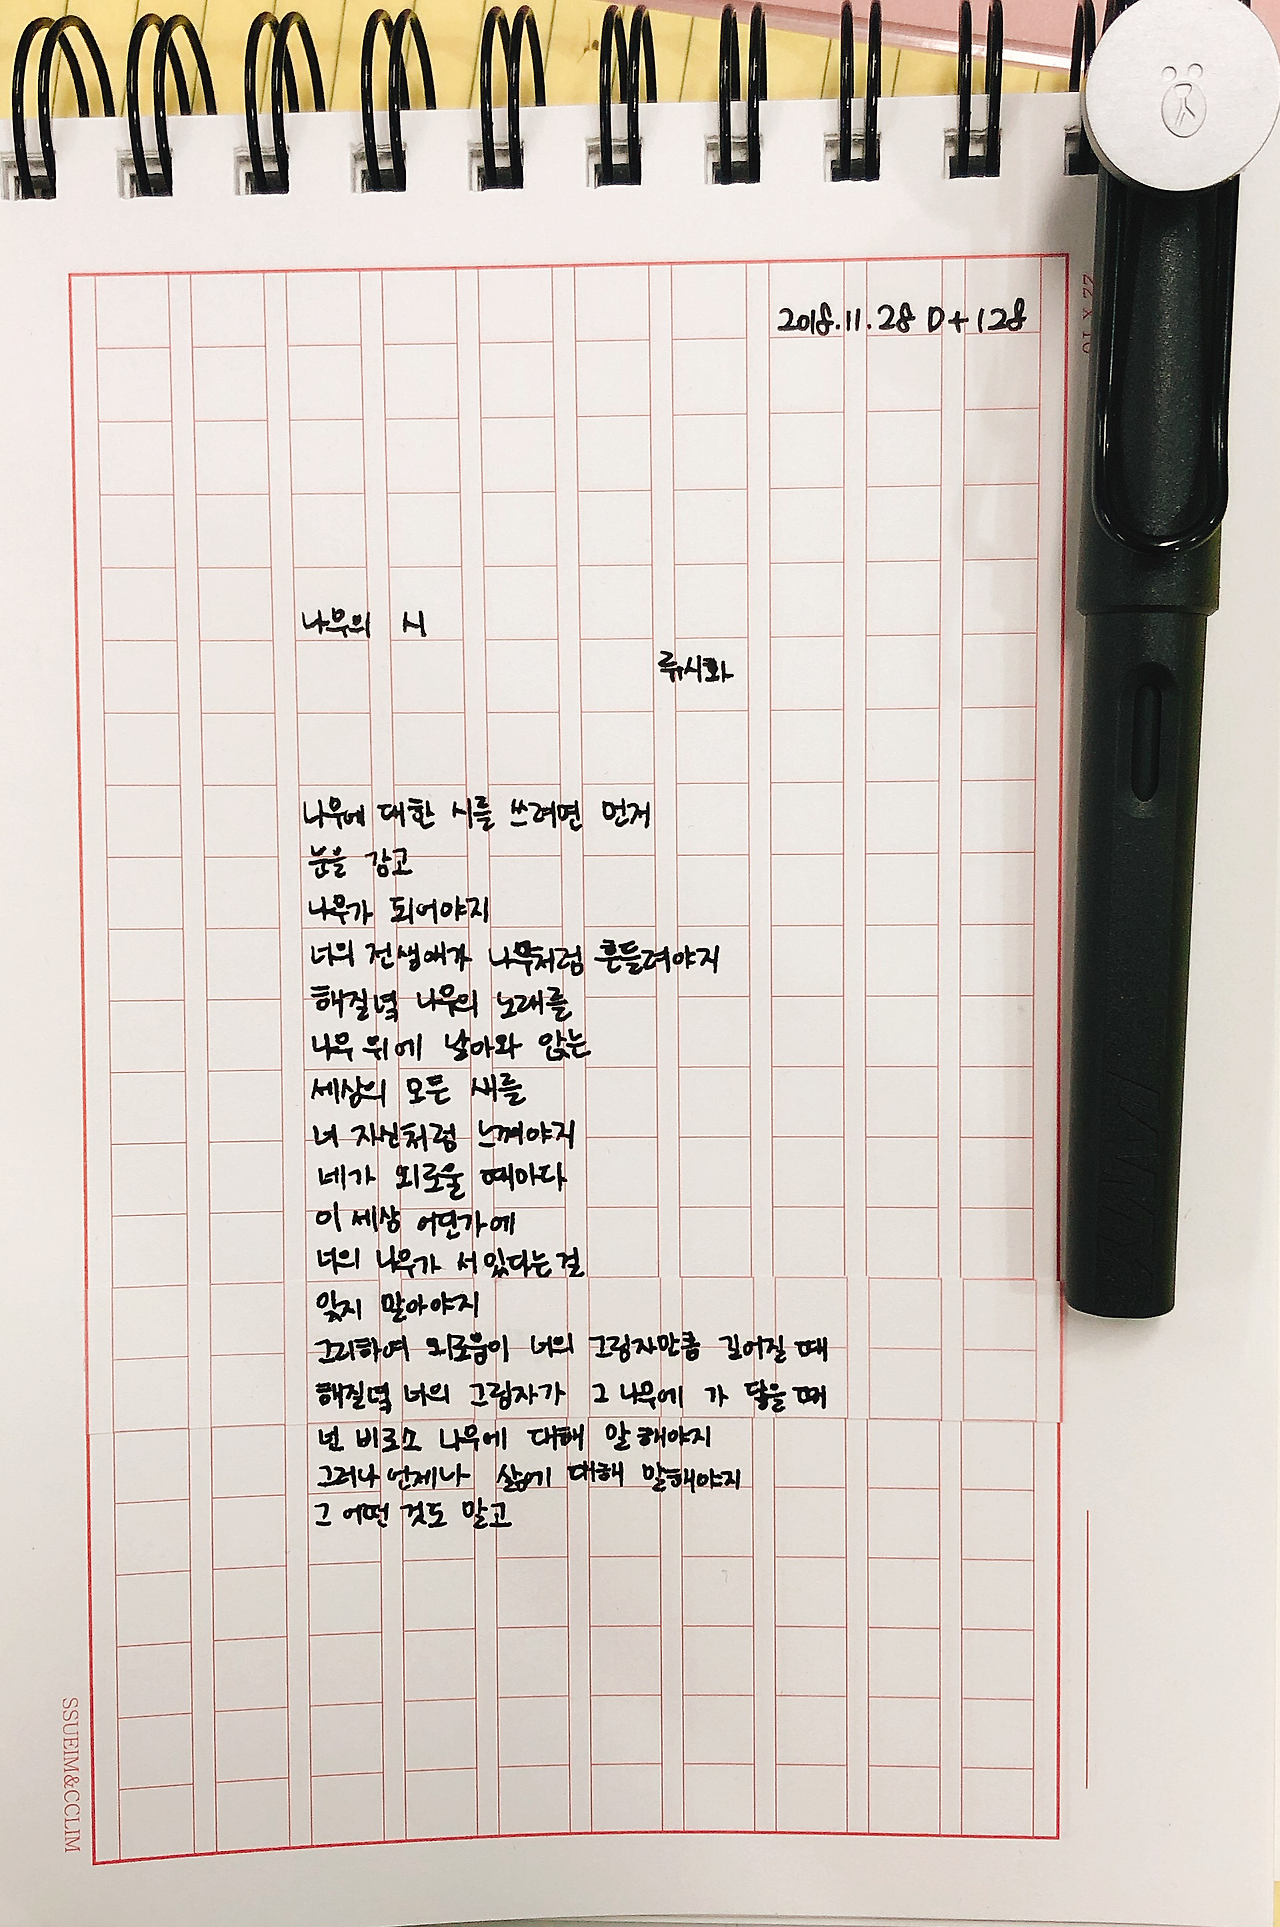 2018.11.28 D+128
22 X 10
나무의 시
류시화
나무에 대한 시를 쓰려면 먼저
눈을 감고
나무가 되어야지
너의 전생애가 나무처럼 흔들려야지
해질녘 나무의 노래를
나무 위에 날아와 앉는
세상의 모든 새를
너 자신처럼 느껴야지
네가 외로울 때마다
이 세상 어딘가에
너의 나무가 서 있다는 걸
잊지 말아야지
그리하여 외로움이 너의 그림자만큼 길어질 때
해질녘 너의 그림자가 그 나무에 가 닿을 때
넌 비로소 나무에 대해 말해야지
그러나 언제나 삶에 대해 말해야지
그 어떤 것도 말고
SSUEIM&CCLIM
LAMY